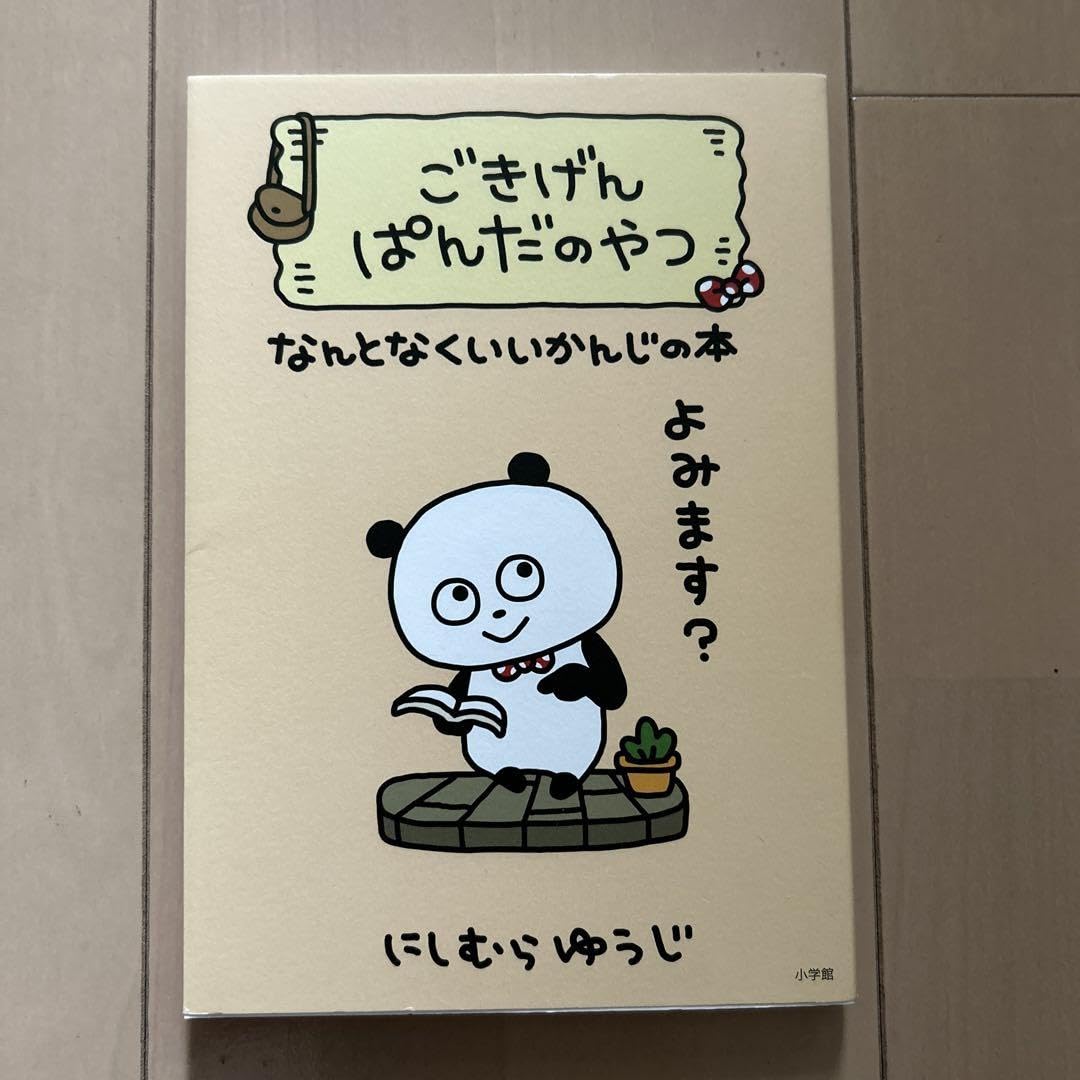 ごきげん
ぱんだのやつ
なんとなくいいかんじの本
よみます?
にしむらゆうじ
小学館